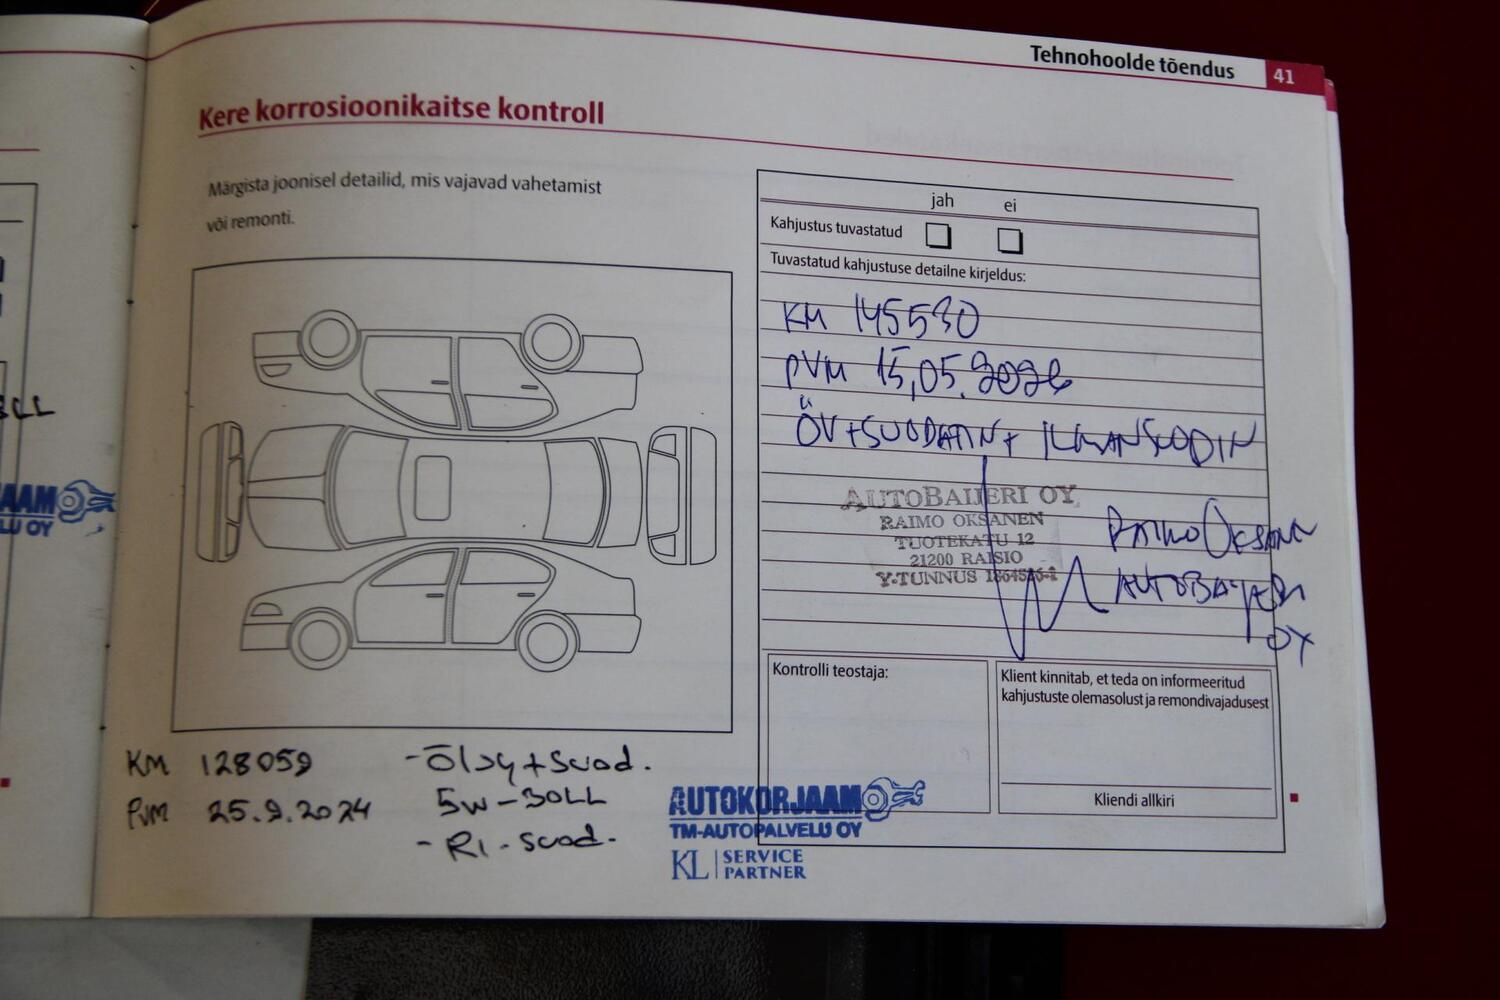 Tehnohoolde tõendus 41
Kere korrosioonikaitse kontroll
Märgista joonisel detailid, mis vajavad vahetamist
või remonti.
jah ei
Kahjustus tuvastatud
Tuvastatud kahjustuse detailne kirjeldus:
KM 145530
PVM 15,05.2026
ÖV+SUODATIN+ ILMANSUODIN
AUTOBAIJERI OY
RAIMO OKSANEN
TUOTEKATU 12
21200 RAISIO
Y-TUNNUS
RAIMO OKSANEN
AUTOBAYERI
OY
Kontrolli teostaja:
Klient kinnitab, et teda on informeeritud
kahjustuste olemasolust ja remondivajadusest
Kliendi allkiri
KM 128059
PVM 25.9.2024
-Öljy+suod.
5W-30LL
- RI-suod.
AUTOKORJAAMO
TM-AUTOPALVELU OY
KL SERVICE
PARTNER
LL
JAAMO
LU OY